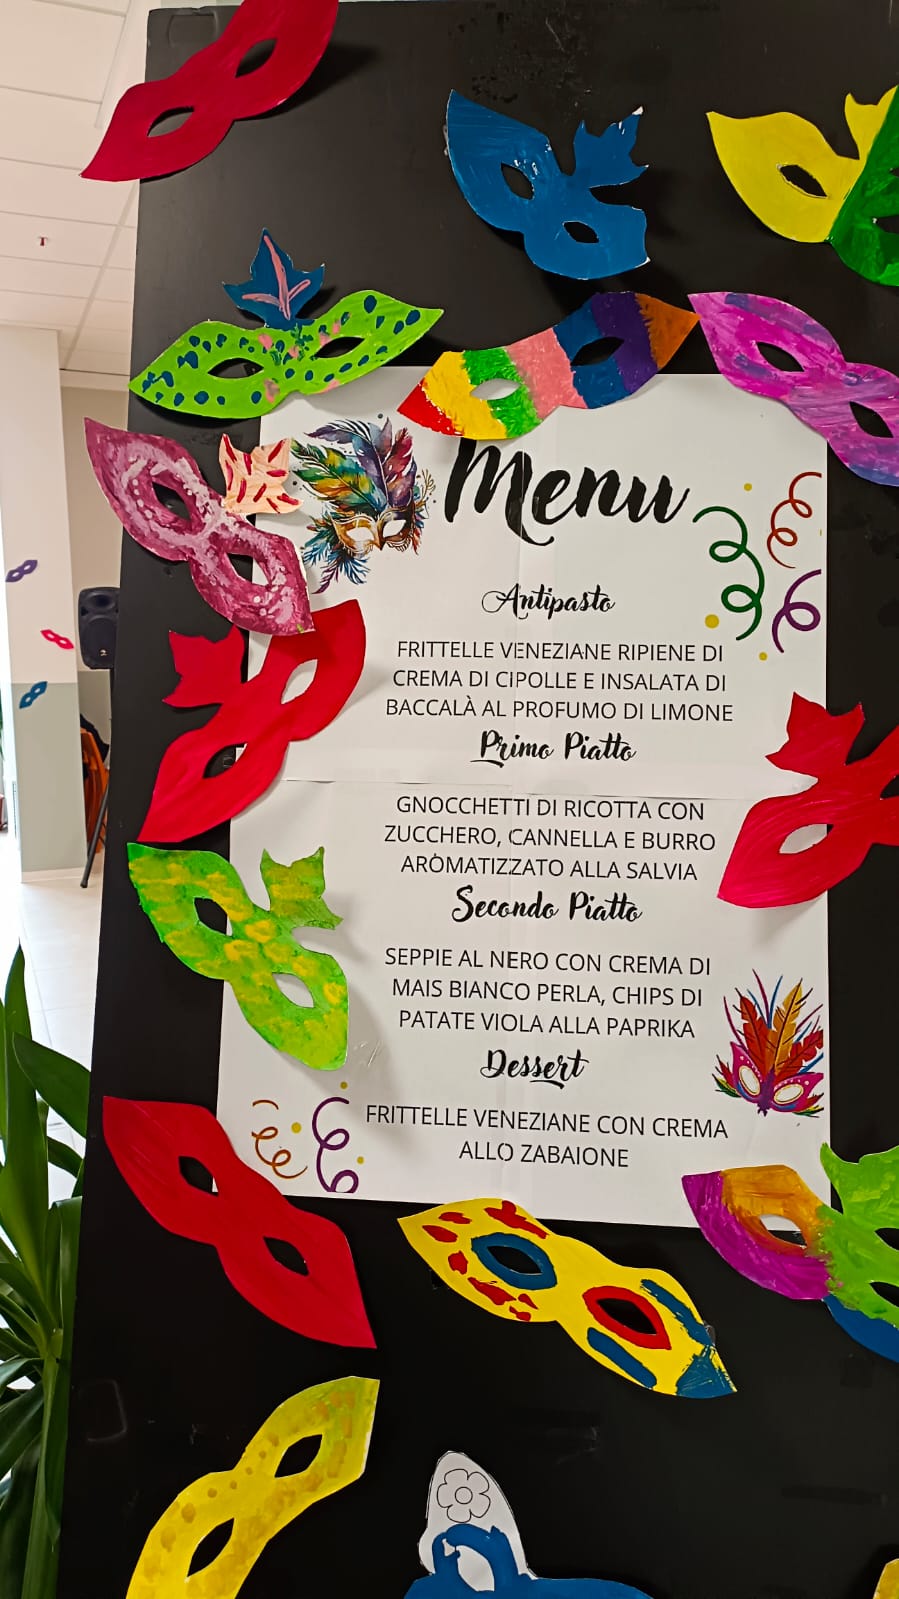 Menu
Antipasto
FRITTELLE VENEZIANE RIPIENE DI
CREMA DI CIPOLLE E INSALATA DI
BACCALÀ AL PROFUMO DI LIMONE
Primo Piatto
GNOCCHETTI DI RICOTTA CON
ZUCCHERO, CANNELLA E BURRO
AROMATIZZATO ALLA SALVIA
Secondo Piatto
SEPPIE AL NERO CON CREMA DI
MAIS BIANCO PERLA, CHIPS DI
PATATE VIOLA ALLA PAPRIKA
Dessert
FRITTELLE VENEZIANE CON CREMA
ALLO ZABAIONE